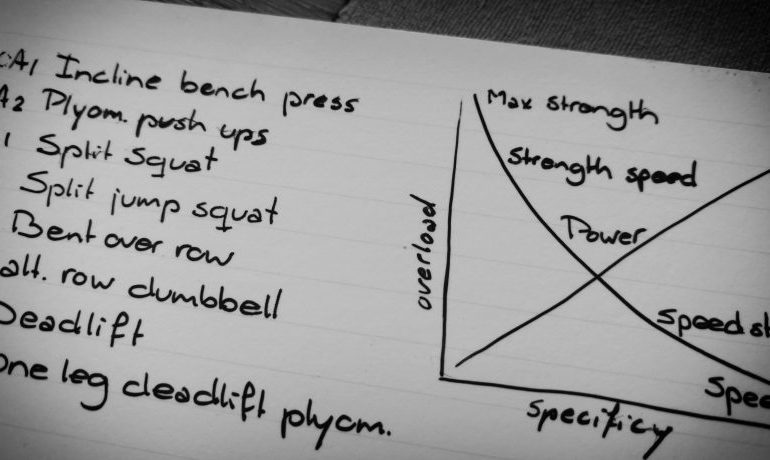 A1 Incline bench press
A2 Plyom. push ups
1 Split squat
Split jump squat
Bent over row
alt. row dumbbell
Deadlift
One leg deadlift plyom.
Max strength
Strength speed
Power
Speed
overload
Specificy